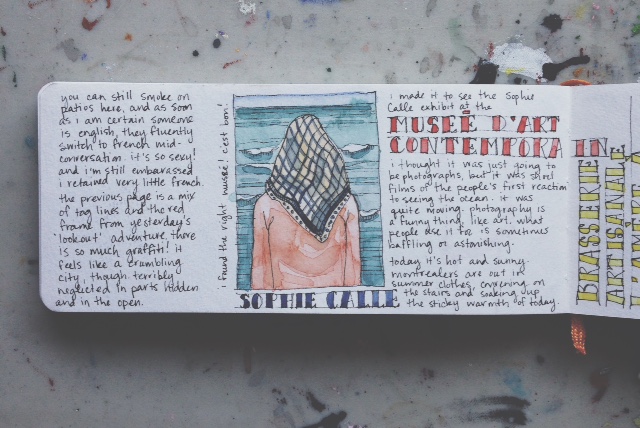 you can still smoke on
patios here, and as soon
as i am certain someone
is english, they fluently
switch to french mid-
conversation. it's so sexy!
and i'm still embarrassed
i retained very little french.
the previous page is a mix
of tag lines and the red
frame from yesterday's
'lookout' adventure. there
is so much graffiti! it
feels like a crumbling
city, though. terribly
neglected in parts hidden
and in the open.
i found the right musée! c'est bon!
SOPHIE CALLE
i made it to see the Sophie
Calle exhibit at the
MUSEÉ D'ART
CONTEMPORAIN
i thought it was just going to
be photographs, but it was
films of the people's first reaction
to seeing the ocean. it was
quite moving. photography is
a funny thing, like art. what
people use it for is sometimes
baffling or astonishing.
today it's hot and sunny.
montrealers are out in
summer clothes, on
the stairs and soaking up
the sticky warmth of today.
BRASSERIE
ARTISANALE